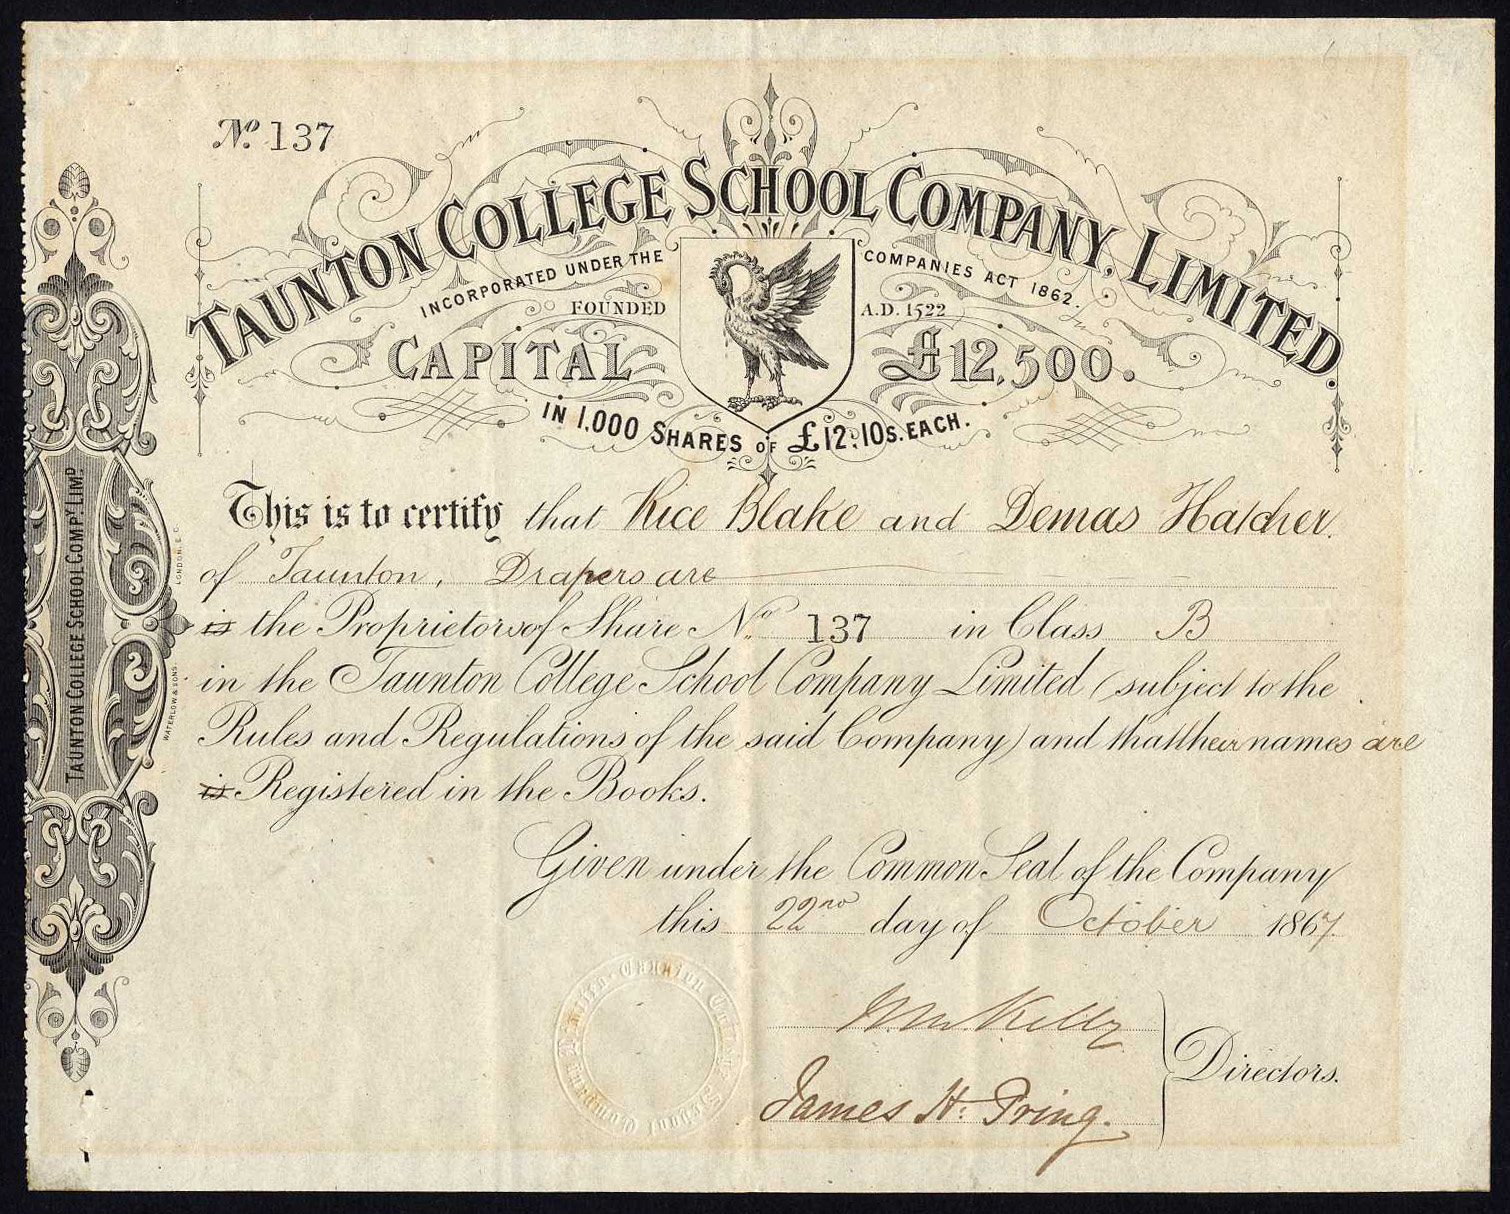 No. 137
TAUNTON COLLEGE SCHOOL COMPANY, LIMITED.
INCORPORATED UNDER THE COMPANIES ACT 1862.
FOUNDED A.D. 1522
CAPITAL £12,500.
IN 1,000 SHARES OF £12.10S. EACH.
This is to certify that Rice Blake and Demas Hatcher.
of Taunton, Drapers are
is the Proprietors of Share No. 137 in Class B
in the Taunton College School Company Limited (subject to the
Rules and Regulations of the said Company) and that their names are
is Registered in the Books.
Given under the Common Seal of the Company
this 22nd day of October 1867.
Wm Kelly
James H. Pring.
Directors.
Taunton College School Company Limited
TAUNTON COLLEGE SCHOOL COMPY. LIMD.
WATERLOW & SONS LONDON. E.C.